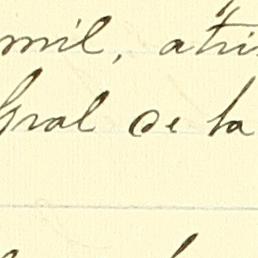 mil, atri
gral de la